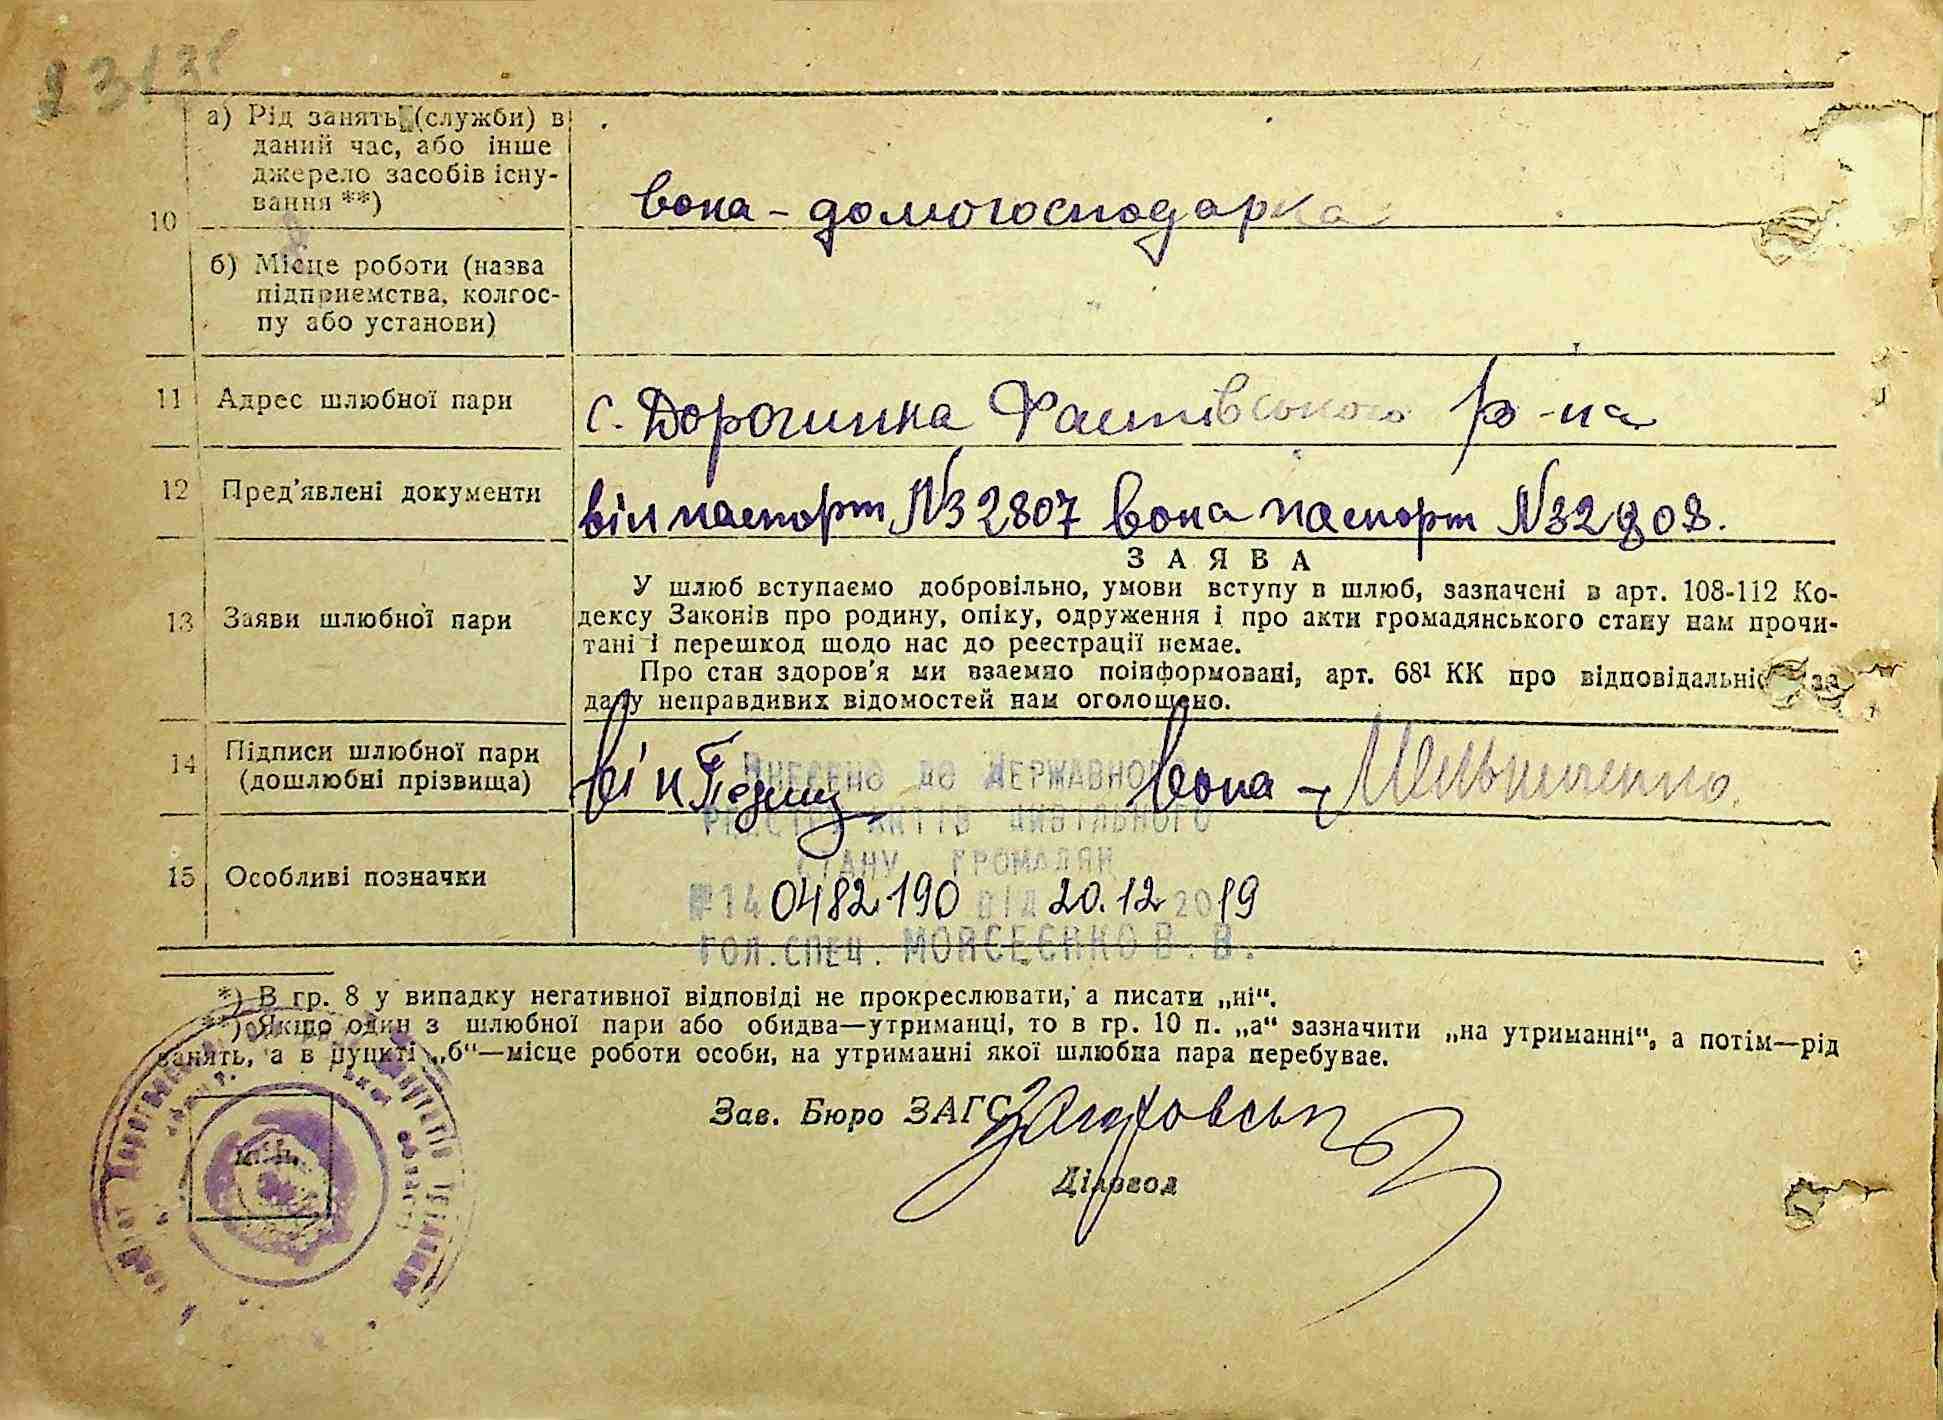 10
а) Рід занять (служби) в
даний час, або інше
джерело засобів існу-
вання **)
вона - домогосподарка
б) Місце роботи (назва
підприємства, колгос-
пу або установи)
11 Адрес шлюбної пари
с. Дорогинка Фастівського р-на
12 Пред'явлені документи
він паспорт N32807 вона паспорт N32808.
ЗАЯВА
13 Заяви шлюбної пари
У шлюб вступаємо добровільно, умови вступу в шлюб, зазначені в арт. 108-112 Ко-
дексу Законів про родину, опіку, одруження і про акти громадянського стану нам прочи-
тані і перешкод щодо нас до реєстрації немає.
Про стан здоров'я ми взаємно поінформовані, арт. 68¹ КК про відповідальніс за
дачу неправдивих відомостей нам оголошено.
14 Підписи шлюбної пари
(дошлюбні прізвища)
він вона - Мельниченко
Внесено до Державного
реєстру актів цивільного
стану громадян
№14 0482190 від 20.12 2019
гол.спец. Моисеєнко В.В.
15 Особливі позначки
*) В гр. 8 у випадку негативної відповіді не прокреслювати, а писати „ні“.
**) Якщо один з шлюбної пари або обидва—утриманці, то в гр. 10 п. „а“ зазначити „на утриманні“, а потім—рід
занять, а в пункті „б“—місце роботи особи, на утриманні якої шлюбна пара перебуває.
Зав. Бюро ЗАГС
Діловод
М.П.